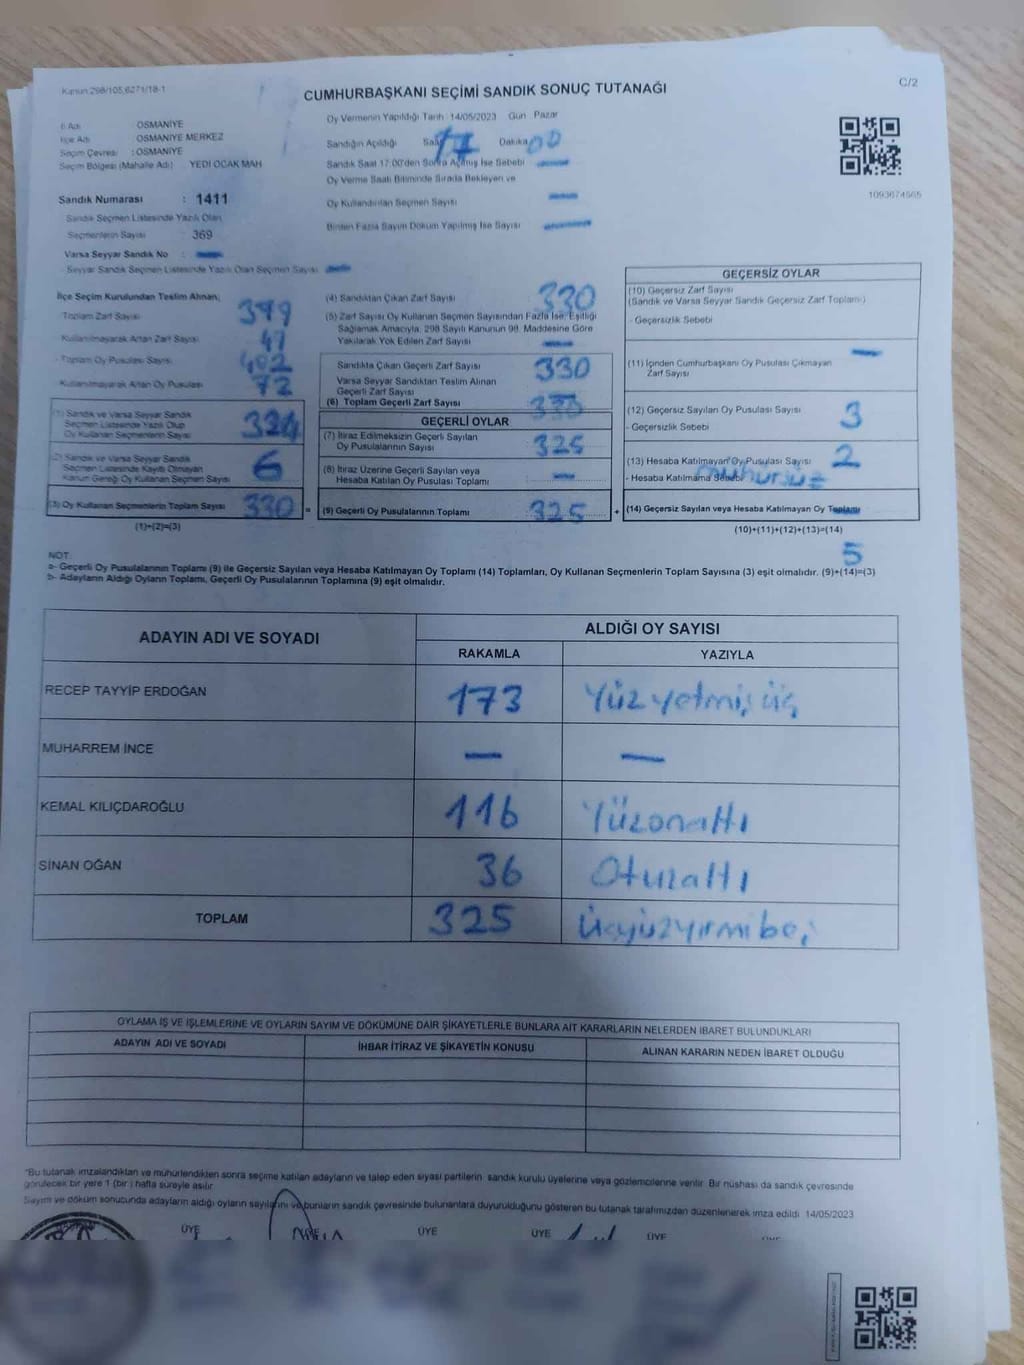 Kanun 298/105,6271/18-1
C/2
CUMHURBAŞKANI SEÇİMİ SANDIK SONUÇ TUTANAĞI
İl Adı OSMANİYE
İlçe Adı OSMANİYE MERKEZ
Seçim Çevresi : OSMANİYE
Seçim Bölgesi (Mahalle Adı) YEDİ OCAK MAH
Sandık Numarası : 1411
Sandık Seçmen Listesinde Yazılı Olan
Seçmenlerin Sayısı : 369
Varsa Seyyar Sandık No : —
- Seyyar Sandık Seçmen Listesinde Yazılı Olan Seçmen Sayısı —
Oy Vermenin Yapıldığı Tarih 14/05/2023 Gün Pazar
Sandığın Açıldığı Saat 17 Dakika 00
Sandık Saat 17:00'den Sonra Açılmış İse Sebebi —
Oy Verme Saati Bitiminde Sırada Bekleyen ve
Oy Kullandırılan Seçmen Sayısı —
Birden Fazla Sayım Döküm Yapılmış İse Sayısı —
1093674565
İlçe Seçim Kurulundan Teslim Alınan;
Toplam Zarf Sayısı
Kullanılmayarak Artan Zarf Sayısı
- Toplam Oy Pusulası Sayısı 402
Kullanılmayarak Artan Oy Pusulası 72
(1) Sandık ve Varsa Seyyar Sandık
Seçmen Listesinde Yazılı Olup
Oy Kullanan Seçmenlerin Sayısı 324
(2) Sandık ve Varsa Seyyar Sandık
Seçmen Listesinde Kayıtlı Olmayan
Kanun Gereği Oy Kullanan Seçmen Sayısı 6
(3) Oy Kullanan Seçmenlerin Toplam Sayısı 330 =
(1)+(2)=(3)
(4) Sandıktan Çıkan Zarf Sayısı 330
(5) Zarf Sayısı Oy Kullanan Seçmen Sayısından Fazla İse, Eşitliği
Sağlamak Amacıyla, 298 Sayılı Kanunun 98. Maddesine Göre
Yakılarak Yok Edilen Zarf Sayısı —
Sandıkta Çıkan Geçerli Zarf Sayısı 330
Varsa Seyyar Sandıktan Teslim Alınan
Geçerli Zarf Sayısı —
(6) Toplam Geçerli Zarf Sayısı 330
GEÇERLİ OYLAR
(7) İtiraz Edilmeksizin Geçerli Sayılan
Oy Pusulalarının Sayısı 325
(8) İtiraz Üzerine Geçerli Sayılan veya
Hesaba Katılan Oy Pusulası Toplamı —
(9) Geçerli Oy Pusulalarının Toplamı 325 +
GEÇERSİZ OYLAR
(10) Geçersiz Zarf Sayısı
(Sandık ve Varsa Seyyar Sandık Geçersiz Zarf Toplamı)
- Geçersizlik Sebebi
(11) İçinden Cumhurbaşkanı Oy Pusulası Çıkmayan —
Zarf Sayısı
(12) Geçersiz Sayılan Oy Pusulası Sayısı 3
- Geçersizlik Sebebi
(13) Hesaba Katılmayan Oy Pusulası Sayısı 2
- Hesaba Katılmama Sebebi mühürsüz
(14) Geçersiz Sayılan veya Hesaba Katılmayan Oy Toplamı
(10)+(11)+(12)+(13)=(14)
5
NOT:
a- Geçerli Oy Pusulalarının Toplamı (9) ile Geçersiz Sayılan veya Hesaba Katılmayan Oy Toplamı (14) Toplamları, Oy Kullanan Seçmenlerin Toplam Sayısına (3) eşit olmalıdır. (9)+(14)=(3)
b- Adayların Aldığı Oyların Toplamı, Geçerli Oy Pusulalarının Toplamına (9) eşit olmalıdır.
ADAYIN ADI VE SOYADI ALDIĞI OY SAYISI
RAKAMLA YAZIYLA
RECEP TAYYİP ERDOĞAN 173 Yüz yetmiş üç
MUHARREM İNCE — —
KEMAL KILIÇDAROĞLU 116 Yüzonaltı
SİNAN OĞAN 36 Otuzaltı
TOPLAM 325 Üçyüzyirmibeş
OYLAMA İŞ VE İŞLEMLERİNE VE OYLARIN SAYIM VE DÖKÜMÜNE DAİR ŞİKAYETLERLE BUNLARA AİT KARARLARIN NELERDEN İBARET BULUNDUKLARI
ADAYIN ADI VE SOYADI İHBAR İTİRAZ VE ŞİKAYETİN KONUSU ALINAN KARARIN NEDEN İBARET OLDUĞU
"Bu tutanak imzalandıktan ve mühürlendikten sonra seçime katılan adayların ve talep eden siyasi partilerin sandık kurulu üyelerine veya gözlemcilerine verilir. Bir nüshası da sandık çevresinde
görülecek bir yere 1 (bir) hafta süreyle asılır.
Sayım ve döküm sonucunda adayların aldığı oyların sayılarını ve bunların sandık çevresinde bulunanlara duyurulduğunu gösteren bu tutanak tarafımızdan düzenlenerek imza edildi. 14/05/2023
ÜYE ÜYE ÜYE ÜYE